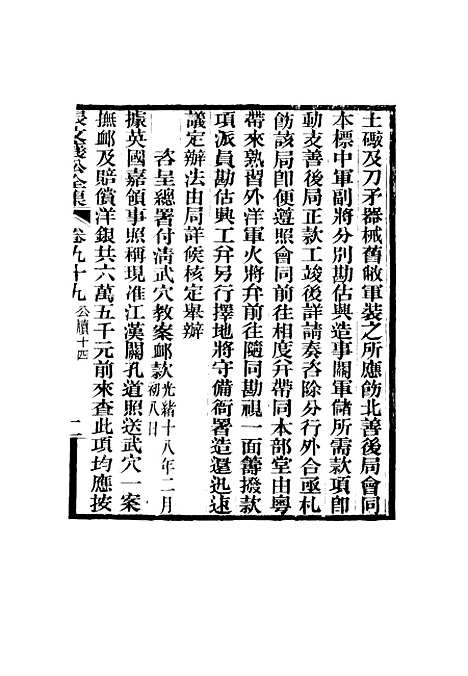 土礮及刀矛器械舊敝軍裝之所應飭北善後局會同
本標中軍副將分別勘估興造事關軍儲所需款項卽
動支善後局正款工竣後詳請奏咨除分行外合亟札
飭該局卽便遵照會同前往相度幷帶同本部堂由粤
帶來熟習外洋軍火將弁前往隨同勘視一面籌撥款
項派員勘估興工幷另行擇地將守備衙署造還迅速
議定辦法由局詳候核定舉辦
咨呈總署付淸武穴教案卹款光緒十八年二月初八日
據英國嘉領事照稱現准江漢關孔道照送武穴一案
撫卹及賠償洋銀共六萬五千元前來查此項均應按
張文襄公全集 卷九十九 公牘十四 二